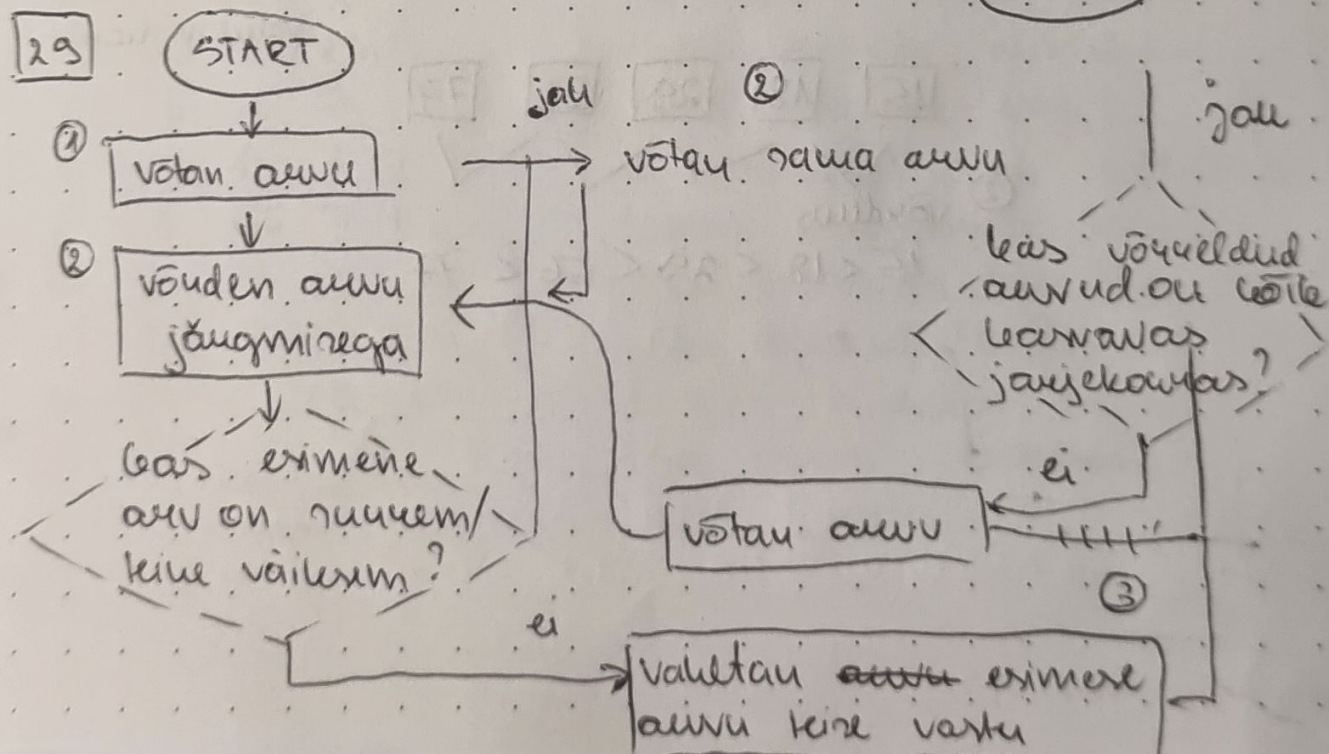 29
START
①
võtan arvu
②
võrdlen arvu
järgmisega
kas esimene
arv on suurem/
teine väiksem?
jah
②
võtan sama arvu
jah
kas võrreldud
arvud on kõik
kasvavas
järjekorras?
ei
võtan arvu
③
ei
vahetan esimese
arvu teise vastu